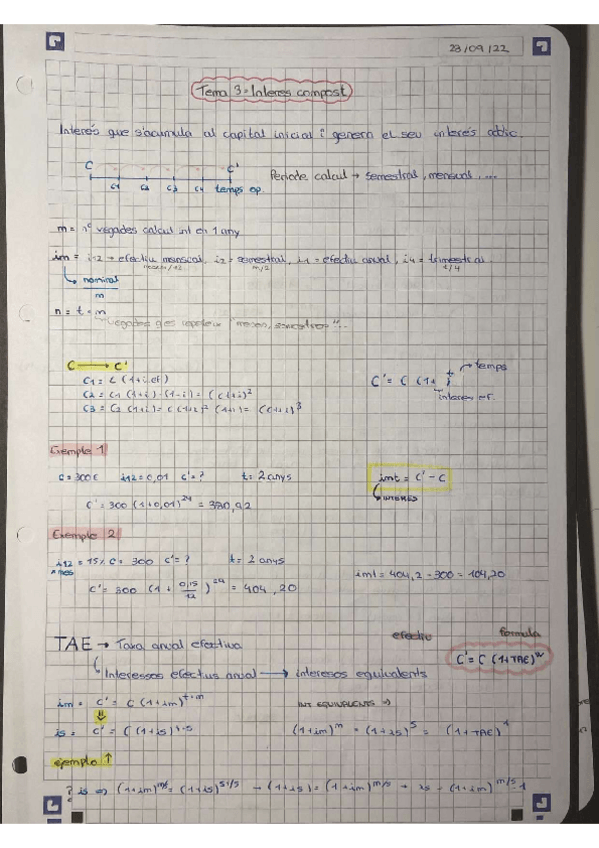 23/09/22
Tema 3: Interes compost
Interés que s'acumula al capital inicial i genera el seu interès addic.
C C'
C1 C2 C3 C4 temps op.
Periode calcul → semestral, mensual, ...
m = nº vegades calcul int en 1 any
im = i12 → efectiu mensual, i2 = semestral, i1 = efectiu anual, i4 = trimestral
m/2 t/4
nominal
m
n = t · m
vegades "mesos, semestres"...
C → C'
C1 = C (1+i ef)
C2 = C1 (1+i) · (1+i) = C (1+i)²
C3 = C2 (1+i) = C (1+i)² (1+i) = C(1+i)³
C' = C (1+ )t → temps
interes ef.
Exemple 1
C = 300€ i12 = 0,01 C' = ? t = 2 anys
C' = 300 (1+0,01)²⁴ = 380,92
imt = C' - C
INTERES
Exemple 2
i12 = 15% C = 300 C' = ? t = 2 anys
C' = 300 (1 + 0,15/12)²⁴ = 404,20
imt = 404,2 - 300 = 104,20
TAE → Taxa anual efectiva
efectiu formula
Interessos efectius anual → interesos equivalents
C' = C (1+TAE)ⁿ
im = C' = C (1+im)t·m
INT EQUIVALENTS
is = C' = C (1+is)t·s
(1+im)ᵐ = (1+is)ˢ = (1+TAE)¹
ejemplo ↑
? is ⇒ (1+im)m/s = (1+is)s·1/s → (1+is) = (1+im)m/s → is = (1+im)m/s - 1